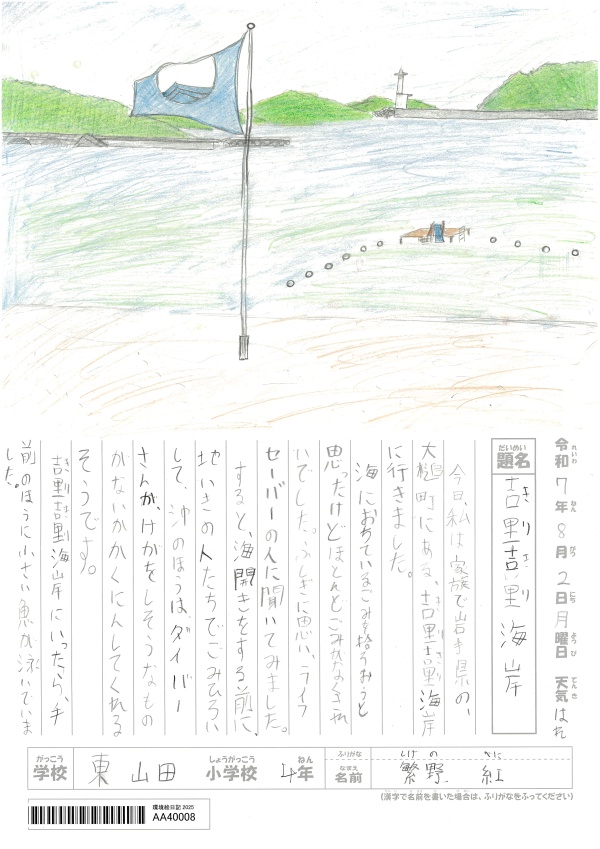 令和7年8月2日月曜日 天気はれ
題名 吉里吉里 海岸
今日、私は家族で岩手県の、
大槌町にある、吉里吉里海岸
に行きました。
海におちているごみを拾うおうと
思ったけどほとんどごみがなくきれ
いでした。ふしぎに思い、ライフ
セーバーの人に聞いてみました。
すると、海開きをする前に、
地いきの人たちでごみひろい
して、沖のほうは、ダイバー
さんが、けがをしそうなもの
がないかかくにんしてくれる
そうです。
吉里吉里海岸にいったら、手
前のほうに小さい魚が泳いでいま
した。
学校 東山田 小学校 4年
ふりがな しげの べに
名前 繁野 紅
(漢字で名前を書いた場合は、ふりがなをふってください)
環境絵日記 2025
AA40008